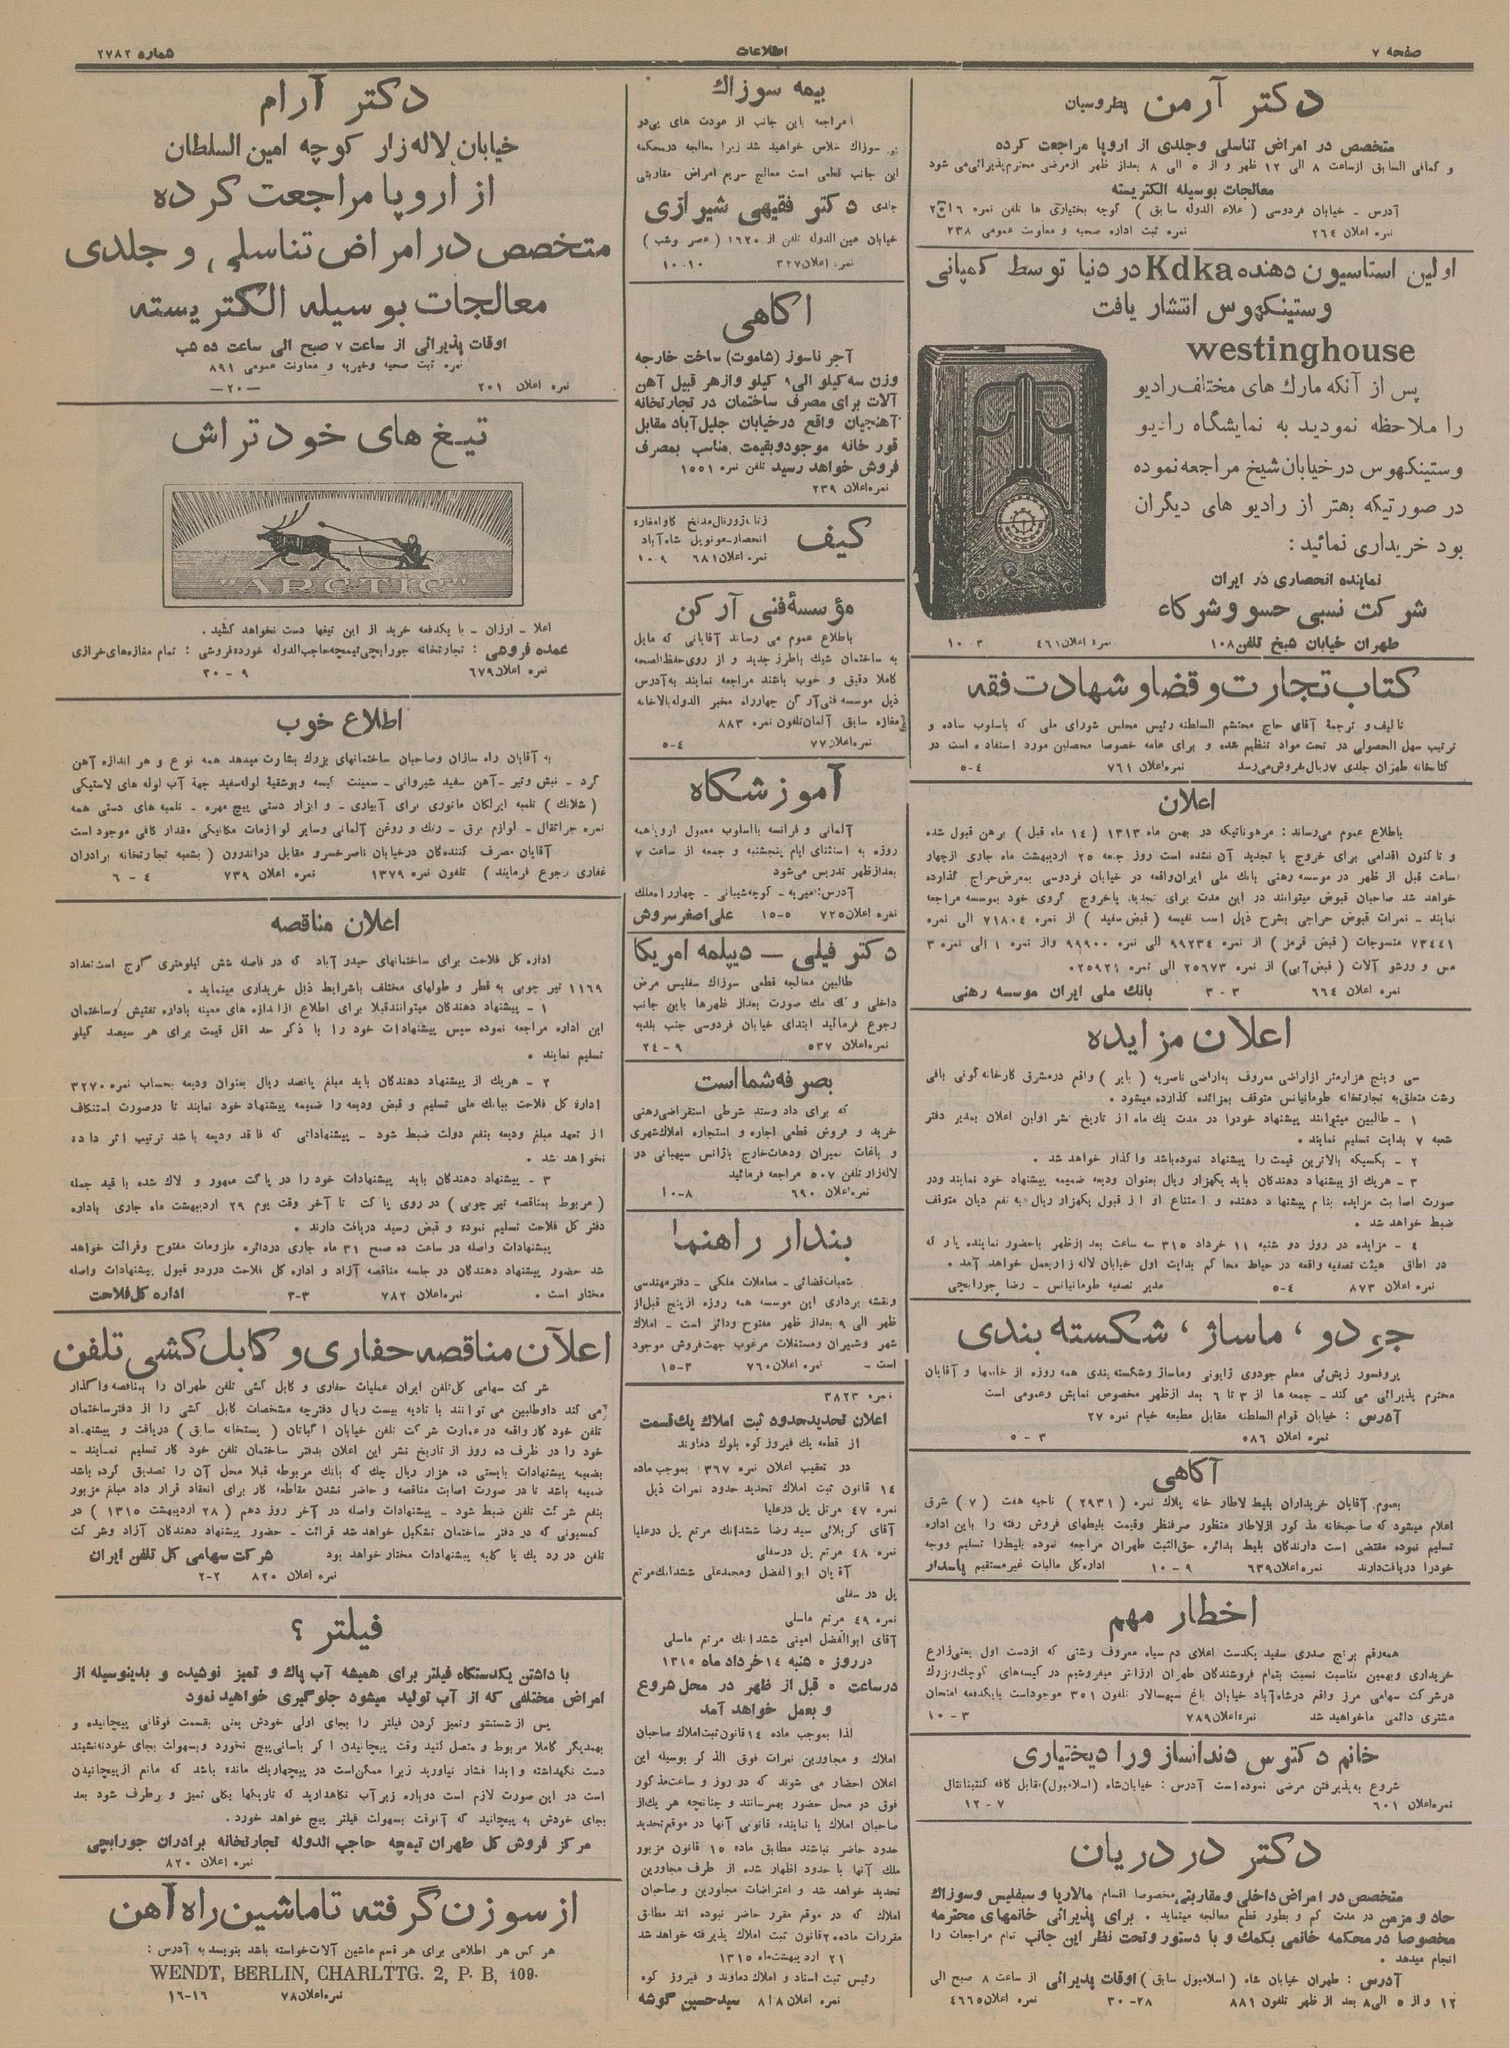 صفحه ۷
اطلاعات
شماره ۲۷۸۲
دکتر آرمن پطروسیان
متخصص در امراض تناسلی وجلدی از اروپا مراجعت کرده
و کمافی السابق ازساعت ۸ الی ۱۲ ظهر و از ۵ الی ۸ بعداز ظهر ازمرضی محترم پذیرائی می شود
معالجات بوسیله الکتریسته
آدرس - خیابان فردوسی ( علاء الدوله سابق ) کوچه بختیاری ها تلفن نمره
نمره اعلان ۲۶۴ نمره ثبت اداره صحیه و معاونت عمومی ۲۳۸
اولین استاسیون دهنده Kdka در دنیا توسط کمپانی
وستینگهوس انتشار یافت
westinghouse
پس از آنکه مارك های مختلف رادیو
را ملاحظه نمودید به نمایشگاه رادیو
وستینگهوس درخیابان شیخ مراجعه نموده
در صورتیکه بهتر از رادیو های دیگران
بود خریداری نمائید :
نماینده انحصاری در ایران
شرکت نسبی حسو و شرکاء
طهران خیابان شیخ تلفن ۱۰۸
نمره اعلان ۴۶۱ ۳-۱۰
کتاب تجارت و قضا و شهادت فقه
تالیف و ترجمهٔ آقای حاج محتشم السلطنه رئیس مجلس شورای ملی که باسلوب ساده و
ترتیب سهل الحصولی در تحت مواد تنظیم شده و برای عامه خصوصا محصلین مورد استفاده است در
کتابخانه طهران جلدی ۷ریال بفروش می رسد نمره اعلان ۷۶۱ ۴-۵
اعلان
باطلاع عموم می رساند : مرهوناتیکه در بهمن ماه ۱۳۱۳ ( ۱۴ ماه قبل ) برهن قبول شده
و تاکنون اقدامی برای خروج یا تجدید آن نشده است روز جمعه ۲۵ اردیبهشت ماه جاری ازچهار
ساعت قبل از ظهر در موسسه رهنی بانك ملی ایران واقعه در خیابان فردوسی بمعرض حراج گذارده
خواهد شد صاحبان قبوض میتوانند در این مدت برای تجدید یاخروج گروی خود بموسسه مراجعه
نمایند - نمرات قبوض حراجی بشرح ذیل است نفیسه ( قبض سفید ) از نمره ۷۱۸۰۴ الی نمره
۷۳۴۴۱ منسوجات ( قبض قرمز ) از نمره ۹۹۲۳۴ الی نمره ۹۹۹۰۰ واز نمره ۱ الی نمره ۳
مس و ورشو آلات ( قبض آبی) از نمره ۲۵۶۷۳ الی نمره ۲۵۹۲۱.
نمره اعلان ۶۶۴ ۳-۳ بانك ملی ایران موسسه رهنی
اعلان مزایده
سی وپنج هزارمتر ازاراضی معروف به اراضی ناصریه ( بایر ) واقع درمشرق کارخانه گونی بافی
رشت متعلق به تجارتخانه طومانیانس متوقف بمزائده گذارده میشود .
۱ - طالبین میتوانند پیشنهاد خودرا در مدت یك ماه از تاریخ نشر اولین اعلان بمدیر دفتر
شعبه ۷ بدایت تسلیم نمایند .
۲ - بکسیکه بالاترین قیمت را پیشنهاد نموده باشد واگذار خواهد شد .
۳ - هریك از پیشنهاد دهندگان باید یکهزار ریال بعنوان ودیعه ضمیمه پیشنهاد خود نمایند ودر
صورت اصابت مزایده بنام پیشنهاد دهنده و امتناع او از قبول یکهزار ریال به نفع دیان متوقف
ضبط خواهد شد .
۴ - مزایده در روز دو شنبه ۱۱ خرداد ۳۱۵ سه ساعت بعد ازظهر باحضور نماینده پارکه
در اطاق هیئت تصفیه واقعه در حیاط محاکم بدایت اول خیابان لاله زار بعمل خواهد آمد .
نمره اعلان ۸۷۳ ۴-۵ مدیر تصفیه طومانیانس - رضا جورابچی
جودو ، ماساژ ، شکسته بندی
پروفسور معلم جودوی ژاپونی وماساژ وشکسته بندی همه روزه از خانمها و آقایان
محترم پذیرائی می کند - جمعه ها از ۳ تا ۶ بعد ازظهر مخصوص نمایش وعمومی است
آدرس : خیابان قوام السلطنه مقابل مطبعه خیام نمره ۲۷
نمره اعلان ۵۸۶ ۳-۵
آگاهی
بعموم آقایان خریداران بلیط لاطار خانه پلاك نمره ( ۲۹۳۱ ) ناحیه هفت ( ۷ ) شرق
اعلام میشود که صاحبخانه مذکور ازلاطار منظور صرفنظر وقیمت بلیطهای فروش رفته را باین اداره
تسلیم نموده مقتضی است دارندگان بلیط بدائره حق الثبت طهران مراجعه نموده بلیط را تسلیم ووجه
خودرا دریافت دارند نمره اعلان ۶۳۹ ۹-۱۰ اداره کل مالیات غیر مستقیم پاسدار
اخطار مهم
همه رقم برنج صدری سفید یکدست اعلای دم سیاه معروف رشتی که ازدست اول یعنی زارع
خریداری وبهمین مناسبت نسبت بتمام فروشندگان طهران ارزانتر میفروشیم در کیسه های کوچك وبزرك
در شرکت سهامی مرز واقع درشاه آباد خیابان باغ سپهسالار تلفون ۳۵۱ موجوداست بایکدفعه امتحان
مشتری دائمی ماخواهید شد نمره اعلان ۷۸۹ ۳-۱۰
خانم دکترس دندانساز ورا دیختیاری
شروع به پذیرفتن مرضی نموده است آدرس : خیابان شاه (اسلامبول) مقابل کافه کنتینانتال
نمره اعلان ۶۰۱ ۷-۱۲
دکتر در دریان
متخصص در امراض داخلی و مقاربتی مخصوصا اقسام مالاریا و سیفلیس و سوزاك
حاد و مزمن در مدت کم و بطور قطع معالجه مینماید . برای پذیرائی خانمهای محترمه
مخصوصا در محکمه خانمی بکمك و با دستور و تحت نظر این جانب تمام مراجعات را
انجام میدهد .
آدرس : طهران خیابان شاه ( اسلامبول سابق ) اوقات پذیرائی از ساعت ۸ صبح الی
۱۲ و از ۵ الی ۸ بعد از ظهر تلفون ۸۸۱ ۲۸-۳۰ نمره اعلان ۴۶۶۵
بیمه سوزاك
مراجعه باین جانب از عودت های پی در
پی سوزاك خلاص خواهید شد زیرا معالجه درمحکمه
این جانب قطعی است معالج سریع امراض مقاربتی
جلدی دکتر فقیهی شیرازی
خیابان عین الدوله تلفن از ۱۶۲۰ ( عصر وشب )
نمره اعلان ۳۲۷ ۱۰-۱۰
آگاهی
آجر ناسوز (شاموت) ساخت خارجه
وزن سه کیلو الی ۹ کیلو وازهر قبیل آهن
آلات برای مصرف ساختمان در تجارتخانه
آهنچیان واقع درخیابان جلیل آباد مقابل
قور خانه موجود و بقیمت مناسب بمصرف
فروش خواهد رسید تلفن نمره ۱۵۵۱
نمره اعلان ۲۳۹
کیف
انحصار - مونوپل شاه آباد
نمره اعلان ۶۸۱ ۹-۱۰
مؤسسهٔ فنی آرکن
باطلاع عموم می رساند آقایانی که مایل
به ساختمان شیك باطرز جدید و از روی حفظ الصحه
کاملا دقیق و خوب باشند مراجعه نمایند به آدرس
ذیل موسسه فنی آرکن چهارراه مخبر الدوله بالاخانه
مغازه سابق آلمان تلفون نمره ۸۸۳
نمره اعلان ۷۷ ۴-۵
آموزشگاه
آلمانی و فرانسه بااسلوب معمول اروپا همه
روزه به استثنای ایام پنجشنبه و جمعه از ساعت ۷
بعدازظهر تدریس می شود
آدرس: امیریه - کوچه شیبانی - چهارراه ملك
نمره اعلان ۷۲۵ ۵-۱۵ علی اصغر سروش
دکتر فیلی - دیپلمه امریکا
طالبین معالجه قطعی سوزاك سفلیس مرض
داخلی و کك مك صورت بعداز ظهرها باین جانب
رجوع فرمائید ابتدای خیابان فردوسی جنب بلدیه
نمره اعلان ۵۳۷ ۹-۲۴
بصرفه شما است
که برای داد وستد شرطی استقراضی رهنی
خرید و فروش قطعی اجاره و استجاره املاك شهری
و باغات شمیران ودهات خارج باژانس سیهپانی در
لاله زار تلفن ۵۰۷ مراجعه فرمائید
نمره اعلان ۶۹۰ ۸-۱۰
بندار راهنما
شعبات قضائی - معاملات ملکی - دفتر مهندسی
ونقشه برداری این موسسه همه روزه ازپنج قبل از
ظهر الی ۹ بعداز ظهر مفتوح ودائر است - املاك
شهر وشمیران ومستغلات مرغوب جهت فروش موجود
است - نمره اعلان ۷۶۰ ۳-۱۵
نمره ۳۸۲۳
اعلان تحدید حدود ثبت املاك یك قسمت
از قطعه یك فیروز کوه بلوك دماوند
در تعقیب اعلان نمره ۳۶۷۰ بموجب ماده
۱۴ قانون ثبت املاك تحدید حدود نمرات ذیل
نمره ۴۷ مرتع پل درعلیا
آقای کربلائی سید رضا ششدانك مرتع پل درعلیا
نمره ۴۸ مرتع پل درسفلی
آقایان ابوالفضل ومحمدعلی ششدانك مرتع
پل در سفلی
نمره ۴۹ مرتع ماسلی
آقای ابوالفضل امینی ششدانك مرتع ماسلی
در روز ۵ شنبه ۱۴ خرداد ماه ۱۳۱۵
درساعت ۵ قبل از ظهر در محل شروع
و بعمل خواهد آمد
لذا بموجب ماده ۱۴ قانون ثبت املاك صاحبان
املاك و مجاورین نمرات فوق الذکر بوسیله این
اعلان احضار می شوند که در روز و ساعت مذکور
فوق در محل حضور بهمرسانند و چنانچه هریك از
صاحبان املاك یا نماینده قانونی آنها در موقع تحدید
حدود حاضر نباشند مطابق ماده ۱۵ قانون مزبور
ملك آنها با حدود اظهار شده از طرف مجاورین
تحدید خواهد شد و اعتراضات مجاورین و صاحبان
املاك که در موقع مقرر حاضر نبوده اند مطابق
مقررات ماده ۲۰ قانون ثبت املاك پذیرفته خواهد شد
۲۱ اردیبهشت ماه ۱۳۱۵
رئیس ثبت اسناد و املاك دماوند و فیروز کوه
نمره اعلان ۸۱۸ سیدحسین گوشه
دکتر آرام
خیابان لاله زار کوچه امین السلطان
از اروپا مراجعت کرده
متخصص در امراض تناسلی و جلدی
معالجات بوسیله الکتریسته
اوقات پذیرائی از ساعت ۷ صبح الی ساعت ده شب
نمره ثبت صحیه وخیریه و معاونت عمومی ۸۹۱
نمره اعلان ۲۰۱ -۲۰-
تیغ های خود تراش
"ARCTIC"
اعلا - ارزان - با یکدفعه خرید از این تیغها دست نخواهد کشید .
عمده فروشی : تجارتخانه جورابچی تیمچه حاجب الدوله خورده فروشی : تمام مغازه های خرازی
نمره اعلان ۶۷۹ ۹-۳۰
اطلاع خوب
به آقایان راه سازان وصاحبان ساختمانهای بزرك بشارت میدهد همه نوع و هر اندازه آهن
گرد - نبش وتیر - آهن سفید شیروانی - سمینت کیسه وبوشقیهٔ لوله سفید جهة آب لوله های لاستیکی
( شلانك ) تلمبه ایرلکان ماتوری برای آبیاری - و ابزار دستی پیچ مهره - تلمبه های دستی همه
نمره جراثقال - لوازم برق - رنك و روغن آلمانی وسایر لوازمات مکانیکی مقدار کافی موجود است
آقایان مصرف کنندگان درخیابان ناصرخسرو مقابل دراندرون ( بشعبه تجارتخانه برادران
غفاری رجوع فرمایند ) تلفون نمره ۱۳۷۹ نمره اعلان ۷۳۹ ۴-۶
اعلان مناقصه
اداره کل فلاحت برای ساختمانهای حیدرآباد که در فاصله شش کیلومتری کرج است تعداد
۱۱۶۹ تیر چوبی به قطر و طولهای مختلف باشرایط ذیل خریداری مینماید .
۱ - پیشنهاد دهندگان میتوانند قبلا برای اطلاع ازاندازه های معینه باداره تفتیش وساختمان
این اداره مراجعه نموده سپس پیشنهادات خود را با ذکر حد اقل قیمت برای هر سیصد کیلو
تسلیم نمایند .
۲ - هریك از پیشنهاد دهندگان باید مبلغ پانصد ریال بعنوان ودیعه بحساب نمره ۳۲۷۰
اداره کل فلاحت ببانك ملی تسلیم و قبض ودیعه را ضمیمه پیشنهاد خود نمایند تا درصورت استنکاف
از تعهد مبلغ ودیعه بنفع دولت ضبط شود - پیشنهاداتی که فاقد ودیعه باشد ترتیب اثر داده
نخواهد شد .
۳ - پیشنهاد دهندگان باید پیشنهادات خود را در پاکت ممهور و لاك شده با قید جمله
( مربوط بمناقصه تیر چوبی ) در روی پاکت تا آخر وقت یوم ۲۹ اردیبهشت ماه جاری باداره
دفتر کل فلاحت تسلیم نموده و قبض رسید دریافت دارند .
پیشنهادات واصله در ساعت ده صبح ۳۱ ماه جاری دردائره ملزومات مفتوح وقرائت خواهد
شد حضور پیشنهاد دهندگان در جلسه مناقصه آزاد و اداره کل فلاحت دررد و قبول پیشنهادات واصله
مختار است . نمره اعلان ۷۸۲ ۳-۳ اداره کل فلاحت
اعلان مناقصه حفاری و کابل کشی تلفن
شرکت سهامی کل تلفن ایران عملیات حفاری و کابل کشی تلفن طهران را بمناقصه واگذار
می کند داوطلبین می توانند با تادیه بیست ریال دفترچه مشخصات کابل کشی را از دفتر ساختمان
تلفن خود کار واقعه در عمارت شرکت تلفن خیابان اکباتان ( پستخانه سابق ) دریافت و پیشنهاد
خود را در ظرف ده روز از تاریخ نشر این اعلان بدفتر ساختمان تلفن خود کار تسلیم نمایند -
بضمیمه پیشنهادات بایستی ده هزار ریال چك که بانك مربوطه قبلا محل آن را تصدیق کرده باشد
ضمیمه باشد تا در صورت اصابت مناقصه و حاضر نشدن مقاطعه کار برای انعقاد قرار داد مبلغ مزبور
بنفع شرکت تلفن ضبط شود - پیشنهادات واصله در آخر روز دهم ( ۲۸ اردیبهشت ۱۳۱۵ ) در
کمسیونی که در دفتر ساختمان تشکیل خواهد شد قرائت - حضور پیشنهاد دهندگان آزاد وشرکت
تلفن در رد یك یا کلیه پیشنهادات مختار خواهد بود شرکت سهامی کل تلفن ایران
نمره اعلان ۸۲۰ ۲-۲
فیلتر ؟
با داشتن یکدستگاه فیلتر برای همیشه آب پاك و تمیز نوشیده و بدینوسیله از
امراض مختلفی که از آب تولید میشود جلوگیری خواهید نمود
پس از شستشو وتمیز کردن فیلتر را بجای اولی خودش یعنی بقسمت فوقانی پیچانیده و
بهمدیگر کاملا مربوط و متصل کنید وقت پیچانیدن اگر باسانی پیچ نخورد وبسهولت بجای خود نه نشیند
دست نگهداشته و ابدا فشار نیاورید زیرا ممکن است در پیچها ریك مانده باشد که مانع ازپیچانیدن
است در این صورت لازم است دوباره زیر آب نگاهدارید که تاریکها بکلی تمیز و برطرف شود بعد
بجای خودش به پیچانید که آنوقت بسهولت فیلتر پیچ خواهد خورد .
مرکز فروش کل طهران تیمچه حاجب الدوله تجارتخانه برادران جورابچی
نمره اعلان ۸۲۰
از سوزن گرفته تا ماشین راه آهن
هر کس هر اطلاعی برای هر قسم ماشین آلات خواسته باشد بنویسد به آدرس :
WENDT, BERLIN, CHARLTTG. 2, P. B, 109.
نمره اعلان ۷۸ ۱۶-۱۶